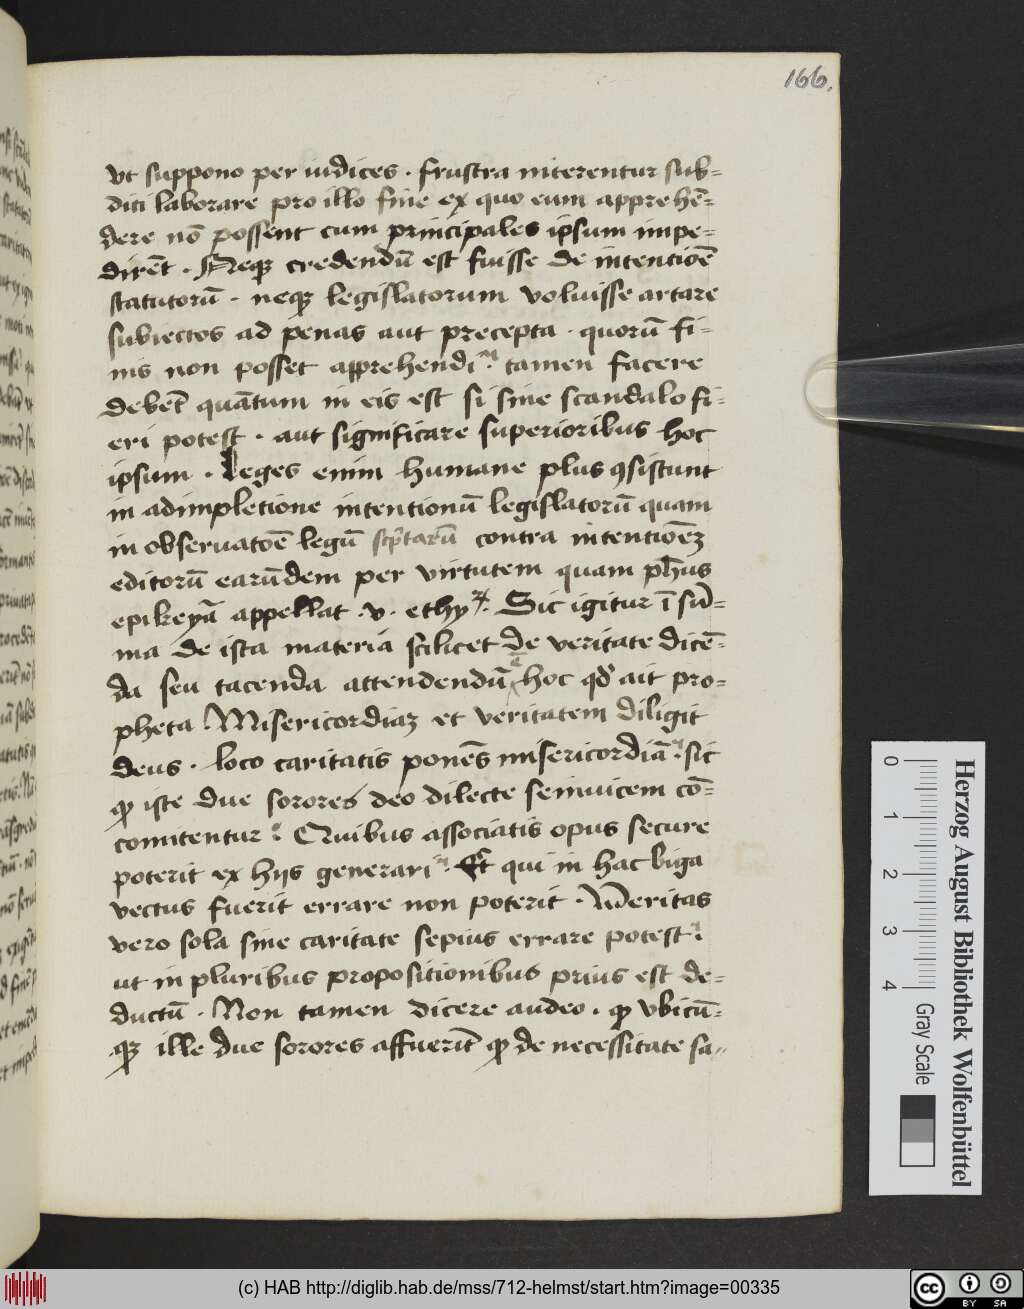 166.
vt suppono per iudices . frustra niterentur sub=
diti laborare pro illo fine ex quo eum apprehē=
dere nō possent cum principales ipsum impe=
dirēt . Neqꝫ credendū est fuisse de intentiōe
statutorū . neqꝫ legislatorum voluisse artare
subiectos ad penas aut precepta . quorū fi=
nis non posset apprehendi . tamen facere
debēt quātum in eis est si sine scandalo fi=
eri potest . aut significare superioribus hoc
ipsum . Leges enim humane plus ꝯsistunt
in adimpletione intentionū legislatorū quam
in obseruatōe legū scptarū contra intentiōeꝫ
editorū earūdem per virtutem quam ph̄us
epikeyā appellat .v. ethy . Sic igitur ī sū=
ma de ista materia scilicet de veritate dicē=
da seu tacenda attendendū hoc qd̓ ait pro=
pheta . Misericordiaꝫ et veritatem diligit
deus . loco caritatis ponēs misericordiā . sic
ꝙ iste due sorores deo dilecte seinuicem cō=
comitentur . Quibus associatis opus secure
poterit ex hijs generari . Et qui in hac biga
vectus fuerit errare non poterit . Veritas
vero sola sine caritate sepius errare potest .
ut in pluribus propositionibus prius est de=
ductū . Non tamen dicere audeo . ꝙ vbicū=
qꝫ ille due sorores affuerīt ꝙ de necessitate sa=
0 1 2 3 4
Herzog August Bibliothek Wolfenbüttel
Gray Scale
(c) HAB http://diglib.hab.de/mss/712-helmst/start.htm?image=00335
cc BY SA